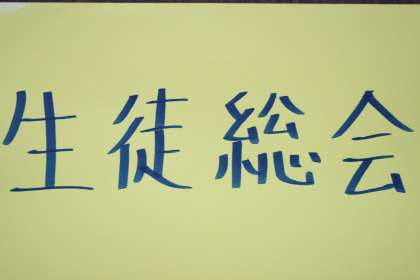 生徒総会